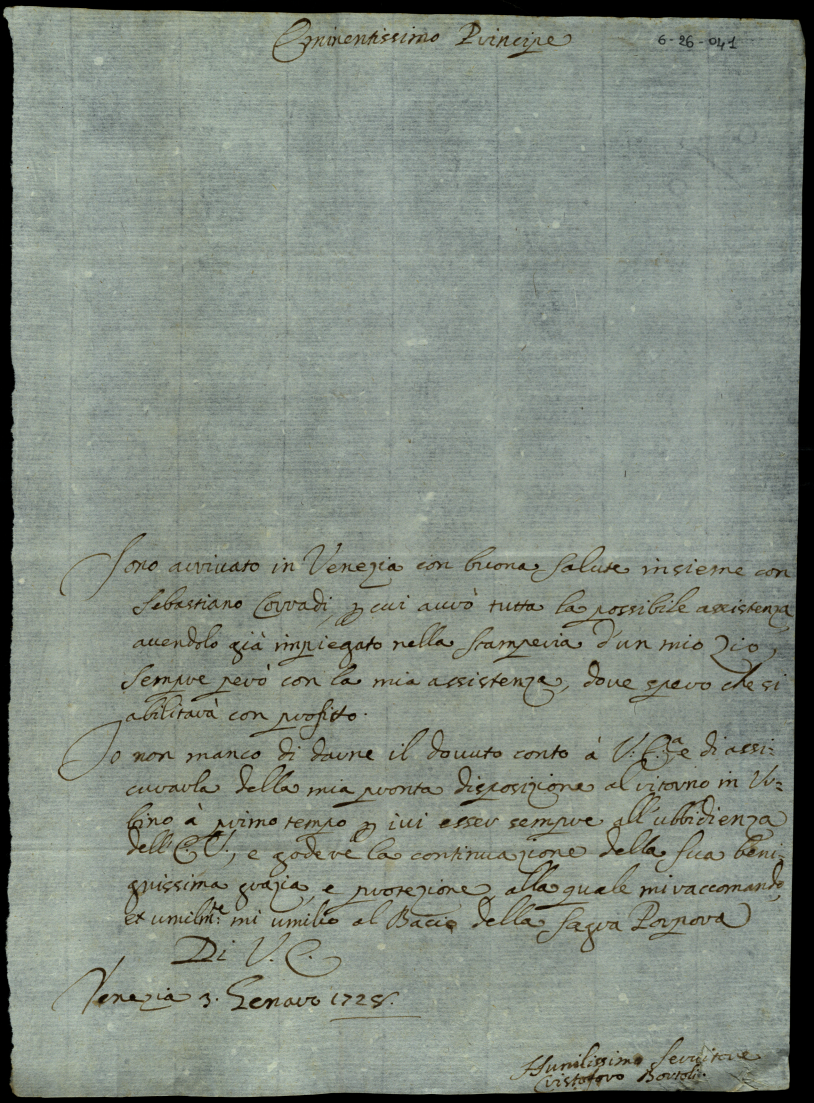 Eminentissimo Principe
6-26-041
Sono arrivato in Venezia con buona salute insieme con
Sebastiano Corradi, p cui avrò tutta la possibile assistenza
avendolo già impiegato nella stamperia d'un mio Zio,
sempre però con la mia assistenza, dove spero che si
abilitarà con profitto.
Io non manco di darne il dovuto conto à V. E.za e di assi:
curarla della mia pronta disposizione al ritorno in Ur=
bino à primo tempo p ivi esser sempre all'ubbidienza
dell'E. V., e godere la continuazione della sua beni:
gnissima grazia, e protezione, alla quale mi raccomando,
et umilmte: mi umilio al Bacio della Sagra Porpora
Di V. E.
Venezia 3. Genaro 1725.
Humilissimo Servitore
Cristoforo Bortoli.